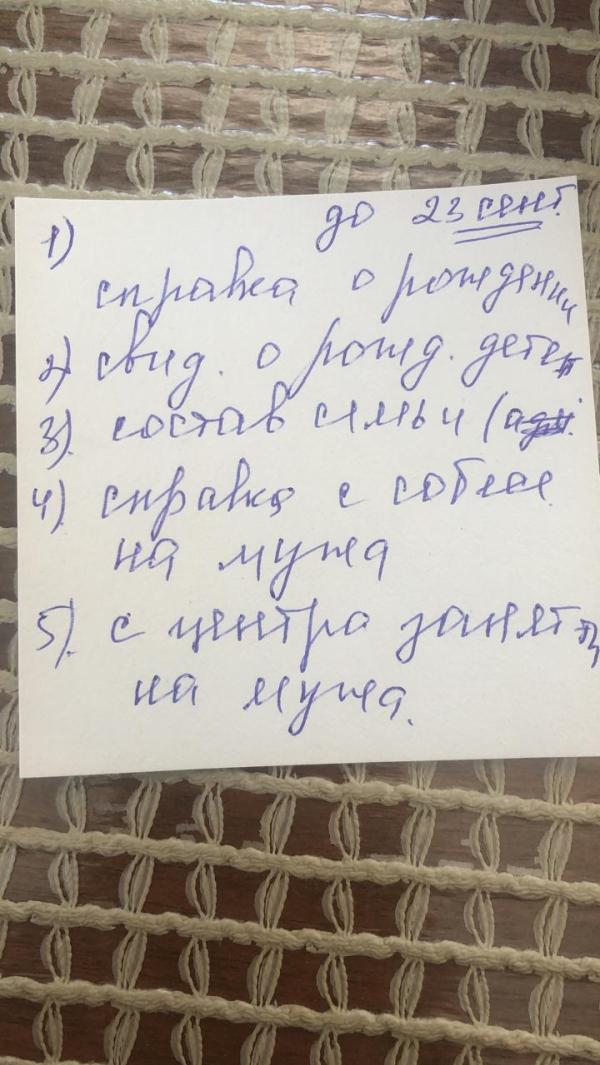 до 23 сент.
1)
справка о рождении
2) свид. о рожд. детей
3). состав семьи
4). справка с собеса
на мужа
5). с центра занят
на мужа.